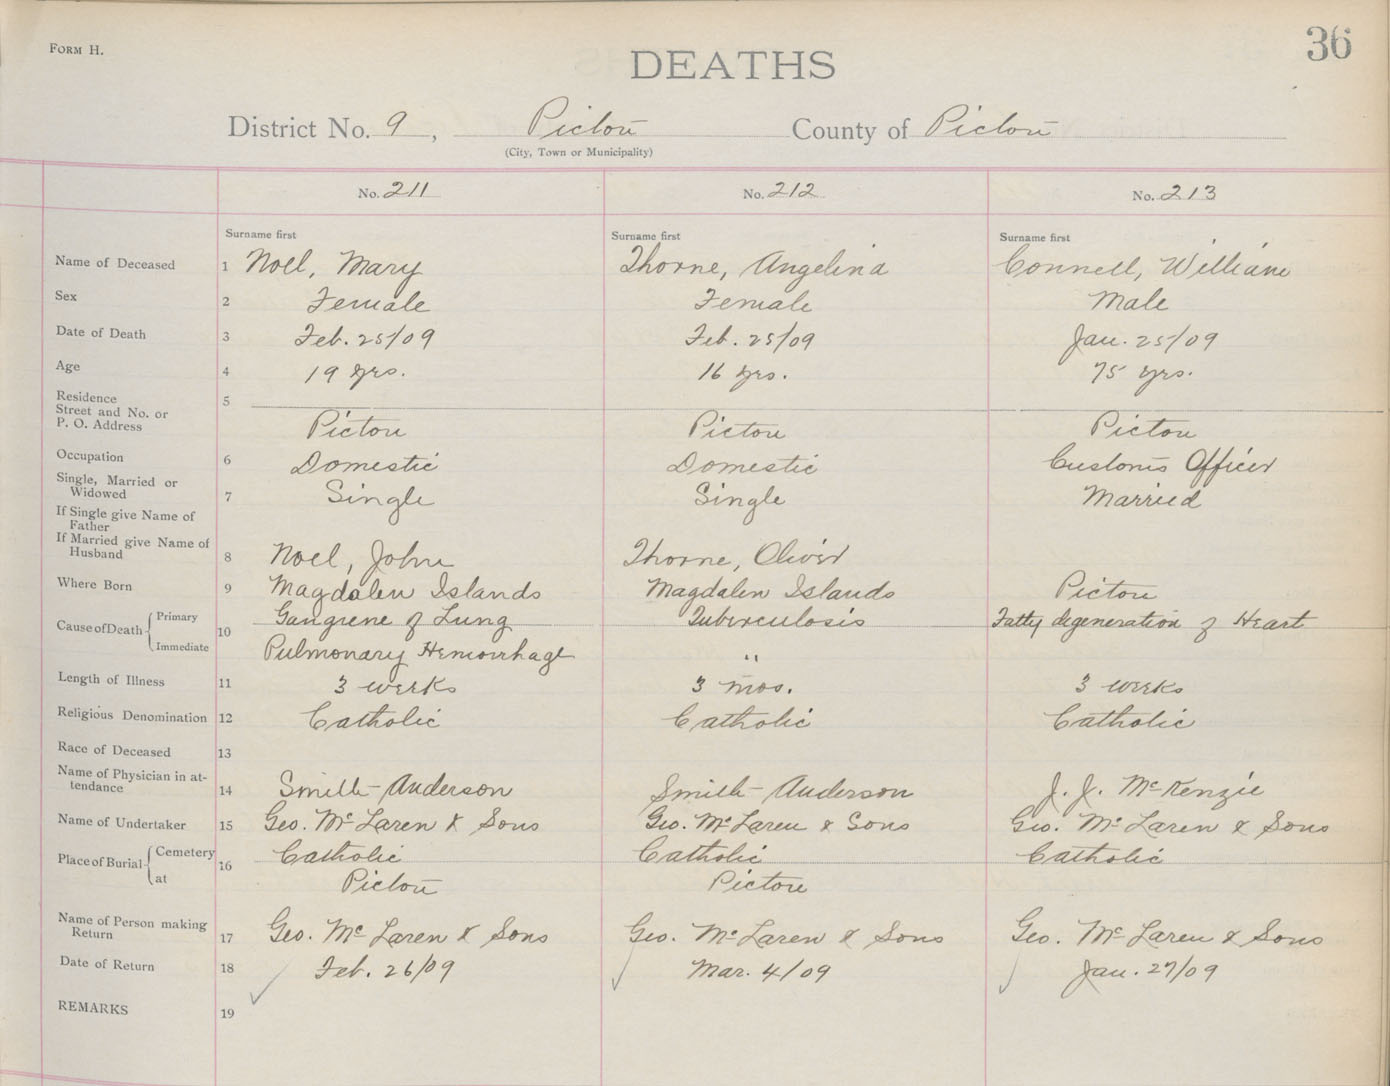 FORM H.
36
DEATHS
District No. 9, Pictou County of Pictou
(City, Town or Municipality)
No. 211 No. 212 No. 213
Surname first Surname first Surname first
Name of Deceased 1 Noel, Mary Thorne, Angelina Connell, William
Sex 2 Female Female Male
Date of Death 3 Feb. 25/09 Feb. 25/09 Jan. 25/09
Age 4 19 yrs. 16 yrs. 75 yrs.
Residence 5
Street and No. or
P. O. Address Pictou Pictou Pictou
Occupation 6 Domestic Domestic Customs Officer
Single, Married or
Widowed 7 Single Single Married
If Single give Name of
Father
If Married give Name of
Husband 8 Noel, John Thorne, Oliver
Where Born 9 Magdalen Islands Magdalen Islands Pictou
Cause of Death Primary 10 Gangrene of Lung Tuberculosis Fatty degeneration of Heart
Immediate Pulmonary Hemorrhage "
Length of Illness 11 3 weeks 3 mos. 3 weeks
Religious Denomination 12 Catholic Catholic Catholic
Race of Deceased 13
Name of Physician in at-
tendance 14 Smith-Anderson Smith-Anderson J. J. McKenzie
Name of Undertaker 15 Geo. McLaren & Sons Geo. McLaren & Sons Geo. McLaren & Sons
Place of Burial Cemetery 16 Catholic Catholic Catholic
at Pictou Pictou
Name of Person making
Return 17 Geo. McLaren & Sons Geo. McLaren & Sons Geo. McLaren & Sons
Date of Return 18 Feb. 26/09 Mar. 4/09 Jan. 27/09
REMARKS 19